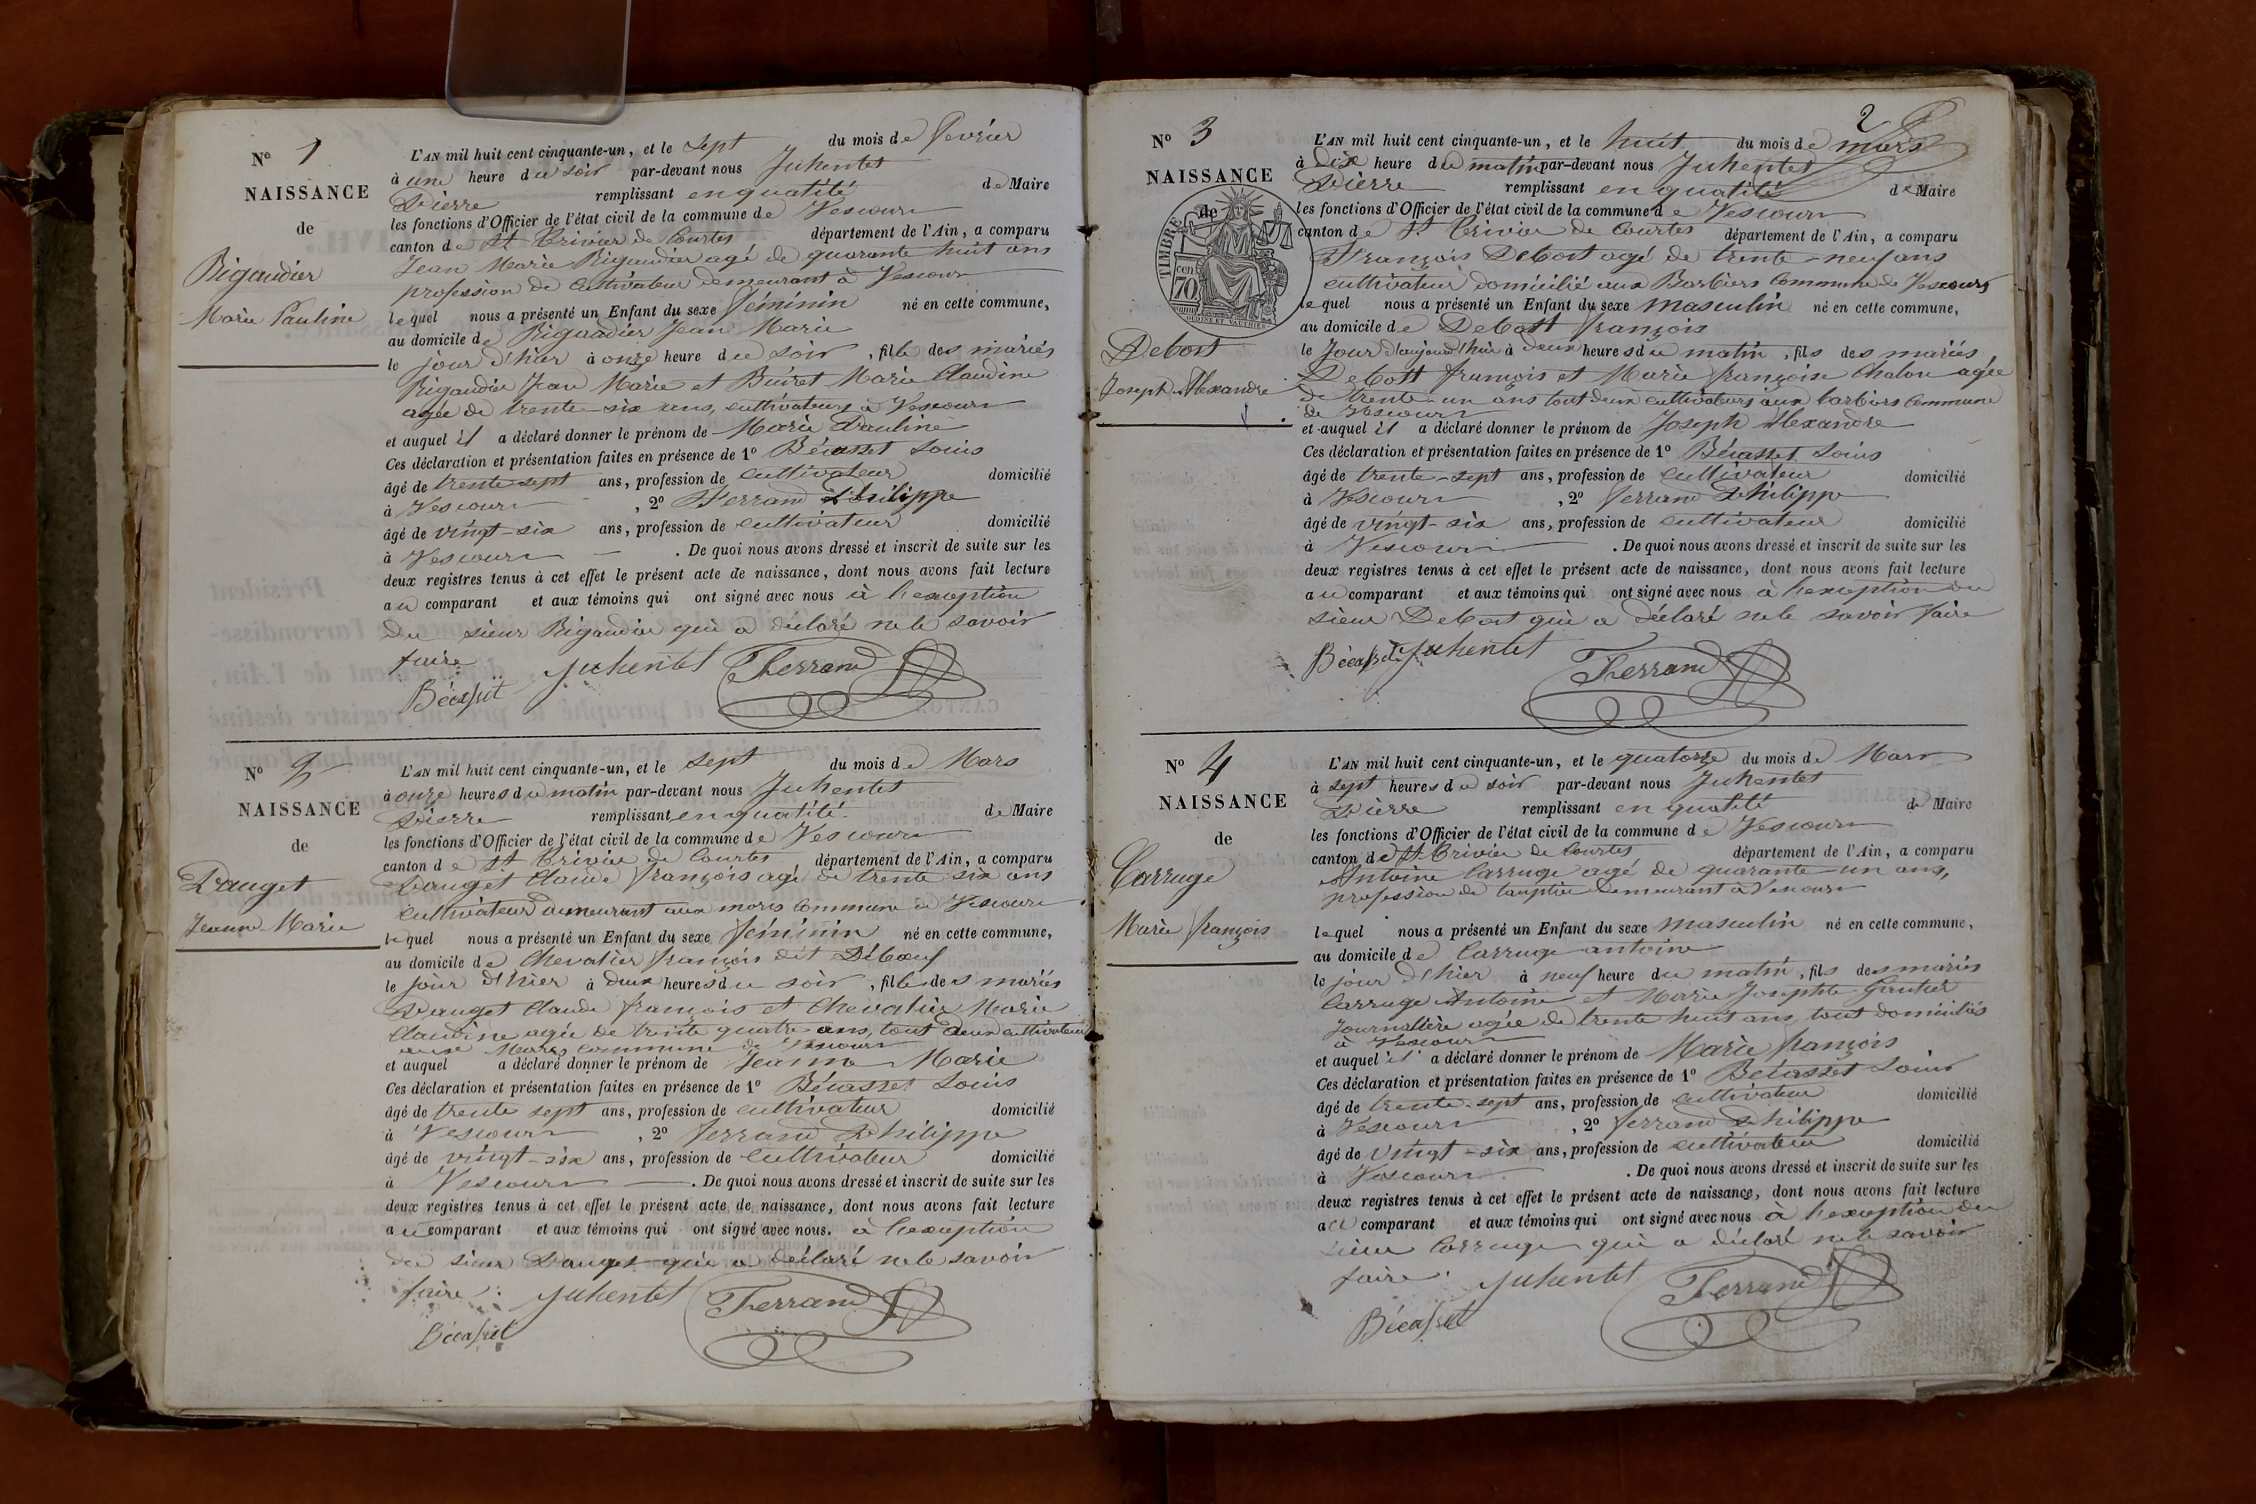 N° 1
NAISSANCE
de
Rigaudier
Marie Pauline
L'AN mil huit cent cinquante-un, et le sept du mois de février
à une heure du soir par-devant nous Juhentet
Pierre remplissant en qualité de Maire
les fonctions d'Officier de l'état civil de la commune de Vescours
canton de St Trivier de Courtes département de l'Ain, a comparu
Jean Marie Rigaudier agé de quarante huit ans
profession de cultivateur demeurant à Vescours
lequel nous a présenté un Enfant du sexe féminin né en cette commune,
au domicile de Rigaudier Jean Marie
le jour d'hier à onze heure du soir, fille des mariés
Rigaudier Jean Marie et Buiret Marie Claudine
agée de trente-six ans, cultivateurs à Vescours
et auquel il a déclaré donner le prénom de Marie Pauline
Ces déclaration et présentation faites en présence de 1° Bécasset Louis
âgé de trente-sept ans, profession de cultivateur domicilié
à Vescours, 2° Ferrand Philippe
âgé de vingt-six ans, profession de cultivateur domicilié
à Vescours. De quoi nous avons dressé et inscrit de suite sur les
deux registres tenus à cet effet le présent acte de naissance, dont nous avons fait lecture
au comparant et aux témoins qui ont signé avec nous à l'exception
du sieur Rigaudier qui a déclaré ne le savoir
faire Juhentet Ferrand
Bécasset
N° 2
NAISSANCE
de
Pauget
Jeanne Marie
L'AN mil huit cent cinquante-un, et le sept du mois de Mars
à onze heures du matin par-devant nous Juhentet
Pierre remplissant en qualité de Maire
les fonctions d'Officier de l'état civil de la commune de Vescours
canton de St Trivier de Courtes département de l'Ain, a comparu
Pauget Claude françois agé de trente six ans
cultivateur demeurant aux mores commune de Vescours
lequel nous a présenté un Enfant du sexe féminin né en cette commune,
au domicile de Chevalier françois dit Débœuf
le jour d'hier à deux heures du soir, fille des mariés
Pauget Claude françois et Chevalier Marie
Claudine agée de trente quatre ans, tout deux cultivateurs
aux Mores commune de Vescours
et auquel a déclaré donner le prénom de Jeanne Marie
Ces déclaration et présentation faites en présence de 1° Bécasset Louis
âgé de trente sept ans, profession de cultivateur domicilié
à Vescours, 2° ferrand Philippe
âgé de vingt-six ans, profession de cultivateur domicilié
à Vescours. De quoi nous avons dressé et inscrit de suite sur les
deux registres tenus à cet effet le présent acte de naissance, dont nous avons fait lecture
au comparant et aux témoins qui ont signé avec nous. à l'exception
du sieur Pauget qui a déclaré ne le savoir
faire. Juhentet Ferrand
Bécasset
2
N° 3
NAISSANCE
de
TIMBRE
70 cen
Debost
Joseph Alexandre
L'AN mil huit cent cinquante-un, et le huit du mois de mars
à dix heure du matin par-devant nous Juhentet
Pierre remplissant en qualité de Maire
les fonctions d'Officier de l'état civil de la commune de Vescours
canton de St Trivier de Courtes département de l'Ain, a comparu
François Debost agé de trente-neuf ans
cultivateur domicilié aux Barbiers commune de Vescours
lequel nous a présenté un Enfant du sexe masculin né en cette commune,
au domicile de Debost françois
le Jour d'aujourd'hui à deux heures du matin, fils des mariés
Debost françois et Marie françoise Chalon agée
de trente-un ans tout deux cultivateurs aux barbiers commune
de Vescours
et auquel il a déclaré donner le prénom de Joseph Alexandre
Ces déclaration et présentation faites en présence de 1° Bécasset Louis
âgé de trente-sept ans, profession de cultivateur domicilié
à Vescours, 2° ferrand Philippe
âgé de vingt-six ans, profession de cultivateur domicilié
à Vescours. De quoi nous avons dressé et inscrit de suite sur les
deux registres tenus à cet effet le présent acte de naissance, dont nous avons fait lecture
au comparant et aux témoins qui ont signé avec nous à l'exception du
sieur Debost qui a déclaré ne le savoir faire
Bécasset Juhentet Ferrand
N° 4
NAISSANCE
de
Carruge
Marie françois
L'AN mil huit cent cinquante-un, et le quatorze du mois de Mars
à sept heures du soir par-devant nous Juhentet
Pierre remplissant en qualité de Maire
les fonctions d'Officier de l'état civil de la commune de Vescours
canton de St Trivier de Courtes département de l'Ain, a comparu
Antoine Carruge agé de quarante-un ans,
profession de taupier demeurant à Vescours
lequel nous a présenté un Enfant du sexe masculin né en cette commune,
au domicile de Carruge antoine
le jour d'hier à neuf heure du matin, fils des mariés
Carruge Antoine et Marie Josephte Gautier
Journalière agée de trente huit ans tout domiciliés
à Vescours
et auquel il a déclaré donner le prénom de Marie françois
Ces déclaration et présentation faites en présence de 1° Bécasset Louis
âgé de trente-sept ans, profession de cultivateur domicilié
à Vescours, 2° ferrand Philippe
âgé de vingt-six ans, profession de cultivateur domicilié
à Vescours. De quoi nous avons dressé et inscrit de suite sur les
deux registres tenus à cet effet le présent acte de naissance, dont nous avons fait lecture
au comparant et aux témoins qui ont signé avec nous à l'exception du
sieur Carruge qui a déclaré ne le savoir
faire. Juhentet Ferrand
Bécasset